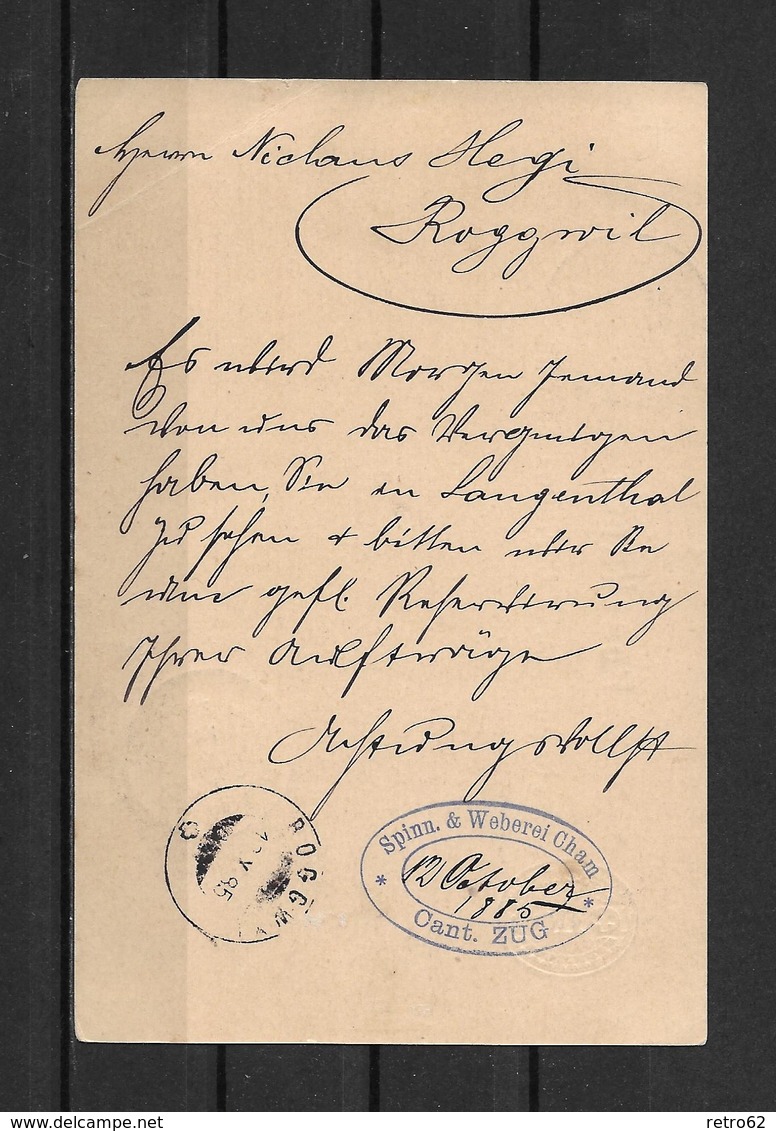 Herrn Niclaus Hegi
Roggwil
Es wird Morgen Jemand
von uns das Vergnügen
haben, Sie in Langenthal
zu sehen & bitten wir Sie
um gefl. Reservirung
Ihrer Aufträge
Achtungsvollst
ROGGWIL
X 85
Spinn. & Weberei Cham
12 October
1885
Cant. ZUG
delcampe.net
retro62